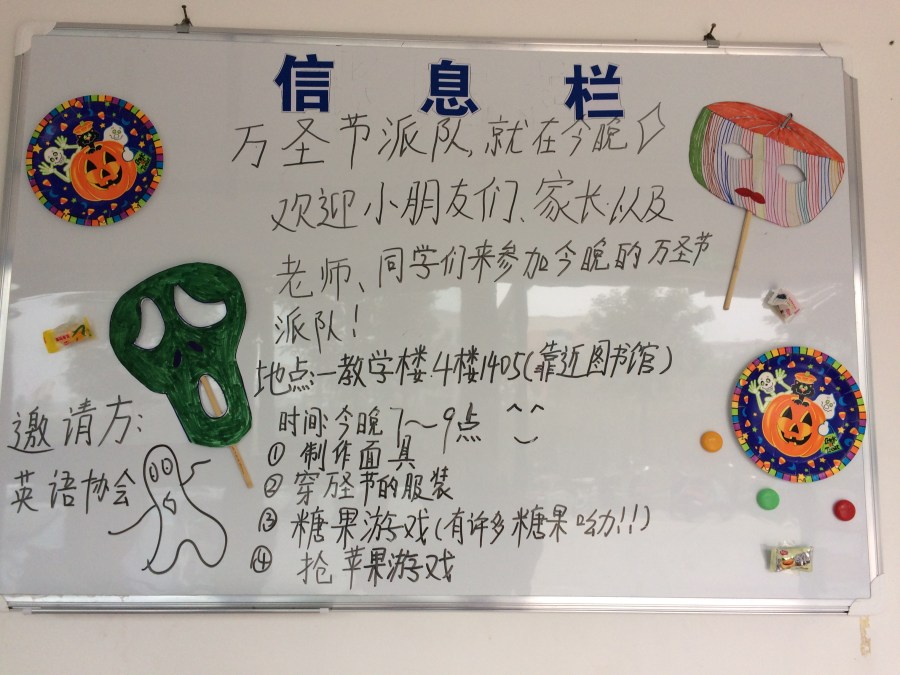 信息栏
万圣节派队,就在今晚
欢迎小朋友们、家长以及
老师、同学们来参加今晚的万圣节
派队!
地点:一教学楼.4楼1405(靠近图书馆)
时间:今晚7～9点 ^^
① 制作面具
② 穿万圣节的服装
③ 糖果游戏(有许多糖果呦!!)
④ 抢苹果游戏
邀请方:
英语协会